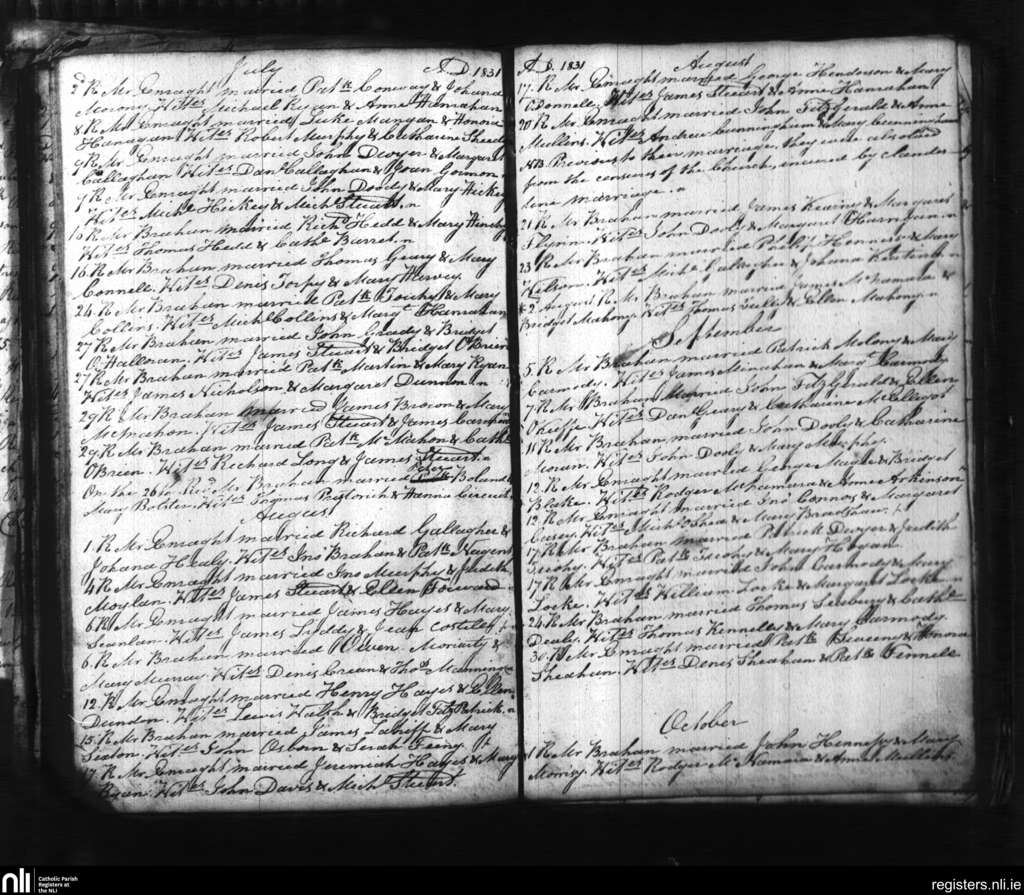 July A.D. 1831
2 R Mr Enraght married Patk Conway & Johana
Morony. Wites Michael Ryan & Anne Hanrahan
8. R Mr Enraght married Luke Mangan & Honora
Hanagan Wites Robet Murphy & Catharine Sheedy
9 R Mr Enraght married John Dwyer & Margaret
Callaghan Wites Danl Callaghan & Joan Gorman
9 R Mr Enraght married John Doody & Mary Hickey
Wites Michl Hickey & Michl Stewart
10 R Mr Brahan married Richd Hedd & Mary Hinchy
Wites Thomas Hedd & Cathe Barret
16. R Mr Brahan married Thomas Geary & Mary
Connell. Wites Denis Torpy & Mary Hervey
24. R Mr Brahan married Patk Touhy & Mary
Collins. Wites Michl Collins & Mary Hanrahan
27 R Mr Brahan married John Grady & Bridget
O'Halloran. Wites James Stewart & Bridget O'Brien
27 R Mr Brahan married Patk Martin & Mary Ryan
Wites James Nicholson & Margaret Dunnon
29 R Mr Brahan married James Brown & Mary
McMahon. Wites James Stewart & James
29 R Mr Brahan married Patk McMahon & Cathe
OBrien. Wites Richard Long & James Stewart
On the 26th Revd Mr Brahan married Boland &
Mary Bolder Wites Thomas & Hanna
August
1 R Mr Enraght married Richard Gallaghee &
Johana Healy. Wites Jno Brahan & Patk Nugent
4 R Mr Enraght married Jno Murphy & Judith
Moylan. Wites James Stewart & Ellen
6. R Mr Enraght married James Hayes & Mary
Scanlan. Wites James Liddy & Jean Costello
6. R Mr Brahan married Owen Moriarty &
Mary Murray. Wites Denis Crean & Thos Mannering
12. R Mr Enraght married Henry Hayes & Ellen
Dundon. Wites Lewis Walsh & Bridget Fitzpatrick
15. R Mr Brahan married James & Mary
Sexton. Wites John Osborn & Sarah
17 R Mr Enraght married Jeremiah Hayes & Mary
Ryan. Wites John Davis & Michl Stewart
A.D. 1831 August
17. R Mr Enraght married George Henderson & Mary
O'Donnell. Wites James Stewart & Anne Hanrahan
20 R Mr Enraght married John FitzGerald & Anne
Mullens. Wites Andrew Cunningham & Mary Cunningham
NB Previous to their marriage, they were absolved
from the censures of the Church, incurred by clandes
tine marriage.
21 R Mr Brahan married James Kearney & Margaret
Flynn. Wites John Dooly & Margaret
23 R Mr Brahan married Patk Hennessy & Mary
Wilson. Wites Michl Gallagher & Johana
2 August R Mr Brahan married James McNamara &
Bridget Mahony. Wites Thomas & Ellen Mahony
September
5. R Mr Brahan married Patrick Molony & Mary
Carmody. Wites James Minahan & Mary
7 R Mr Brahan Married John FitzGerald & Ellen
OKeeffe. Wites Danl Geary & Catharine McElligot
11 R Mr Brahan married John Dooly & Catharine
Moran. Wites John Dooly & Mary Murphy
12. R Mr Enraght married George & Bridget
Blake. Wites Rodger McNamara & Anne Arkinson
12. R Mr Enraght married Jno Connors & Margaret
Casey. Wites Michl Shea & Mary Bradshaw
17 R Mr Brahan married Patrick Dwyer & Judith
Wites Patk & Mary Hogan
17. R Mr Enraght married John Carmody & Mary
Locke. Wites William Locke & Margaret Locke
24. R Mr Brahan married Thomas & Cathe
Dealy. Wites Thomas Kennelly & Mary Carmody
30. R Mr Enraght married Patk Sweeny & Honora
Sheahan. Wites Denis Sheahan & Patk Fennell
October
1 R Mr Brahan married John Hennessy & Mary
Morrisy. Wites Rodger McNamara & Anne Mullens
nli Catholic Parish
Registers at
the NLI
registers.nli.ie